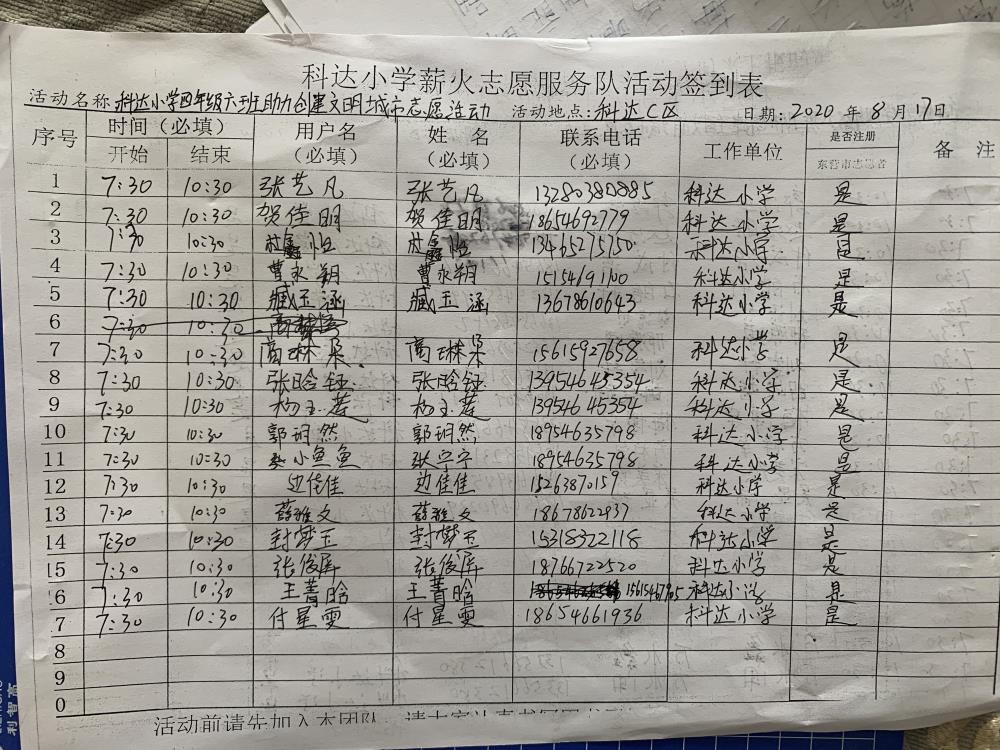 科达小学薪火志愿服务队活动签到表
活动名称:科达小学四年级六班助力创建文明城市志愿活动 活动地点:科达C区 日期:2020年8月17日
序号 时间(必填) 用户名(必填) 姓名(必填) 联系电话(必填) 工作单位 是否注册 备注
开始 结束 东营市志愿者
1 7:30 10:30 张艺凡 张艺凡 13280380885 科达小学 是
2 7:30 10:30 贺佳明 贺佳明 18654692779 科达小学 是
3 7:30 10:30 13465275750 科达小学 是
4 7:30 10:30 曹永翔 曹永翔 15154691100 科达小学 是
5 7:30 10:30 臧玉涵 臧玉涵 13678610643 科达小学 是
6 7:30 10:30
7 7:30 10:30 高琳朵 高琳朵 15615927658 科达小学 是
8 7:30 10:30 张晗钰 张晗钰 13954645354 科达小学 是
9 7:30 10:30 13954645354 科达小学 是
10 7:30 10:30 郭玥然 郭玥然 18954635798 科达小学 是
11 7:30 10:30 小鱼鱼 张宁宁 18954635798 科达小学 是
12 7:30 10:30 边佳佳 边佳佳 15263870159 科达小学 是
13 7:30 10:30 薛雅文 薛雅文 18678622937 科达小学 是
14 7:30 10:30 封梦玉 封梦玉 15318322118 科达小学 是
15 7:30 10:30 张俊屏 张俊屏 18766722520 科达小学 是
6 7:30 10:30 王菁晗 王菁晗 科达小学 是
7 7:30 10:30 付星雯 付星雯 18654661936 科达小学 是
8
9
0
活动前请先加入本团队